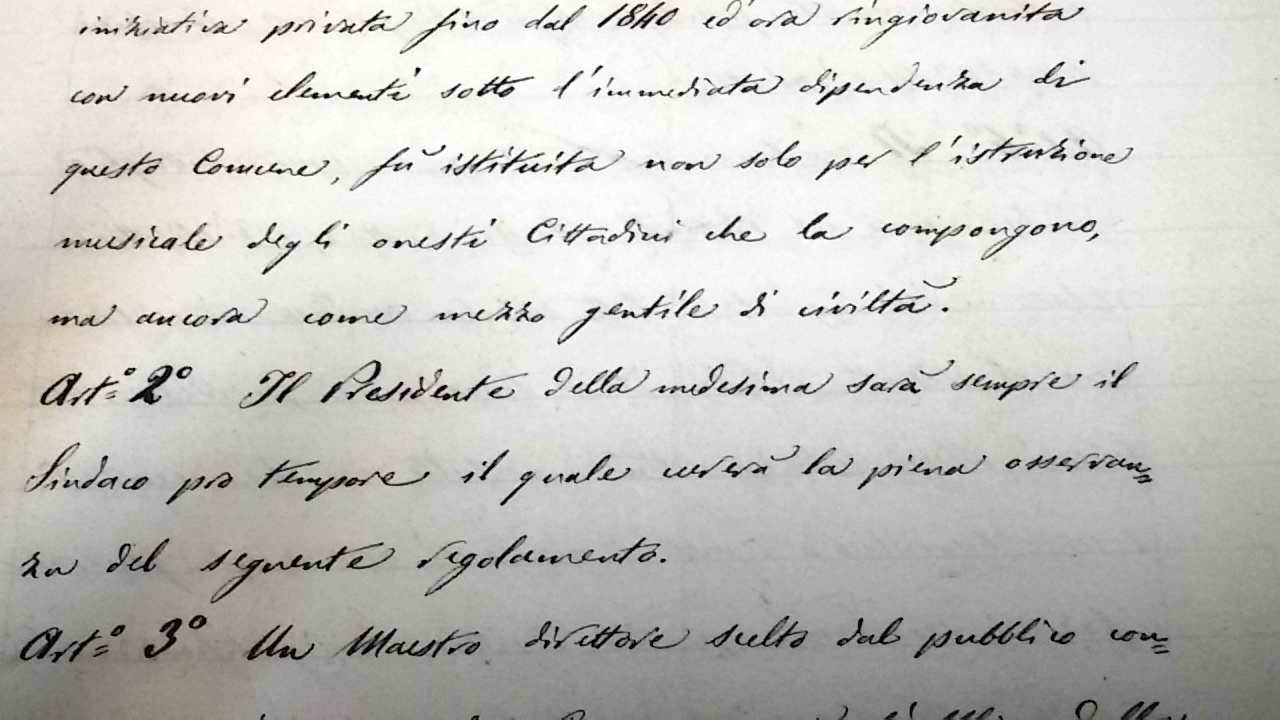 iniziativa privata fino dal 1840 ed'ora ringiovanita
con nuovi elementi sotto l'immediata dipendenza di
questo Comune, fù istituita non solo per l'istruzione
musicale degli onesti Cittadini che la compongono,
ma ancora come mezzo gentile di civiltà.
Art.º 2º Il Presidente della medesima sarà sempre il
Sindaco pro tempore il quale curerà la piena osservan=
za del seguente regolamento.
Art.º 3º Un Maestro direttore scelto dal pubblico con=